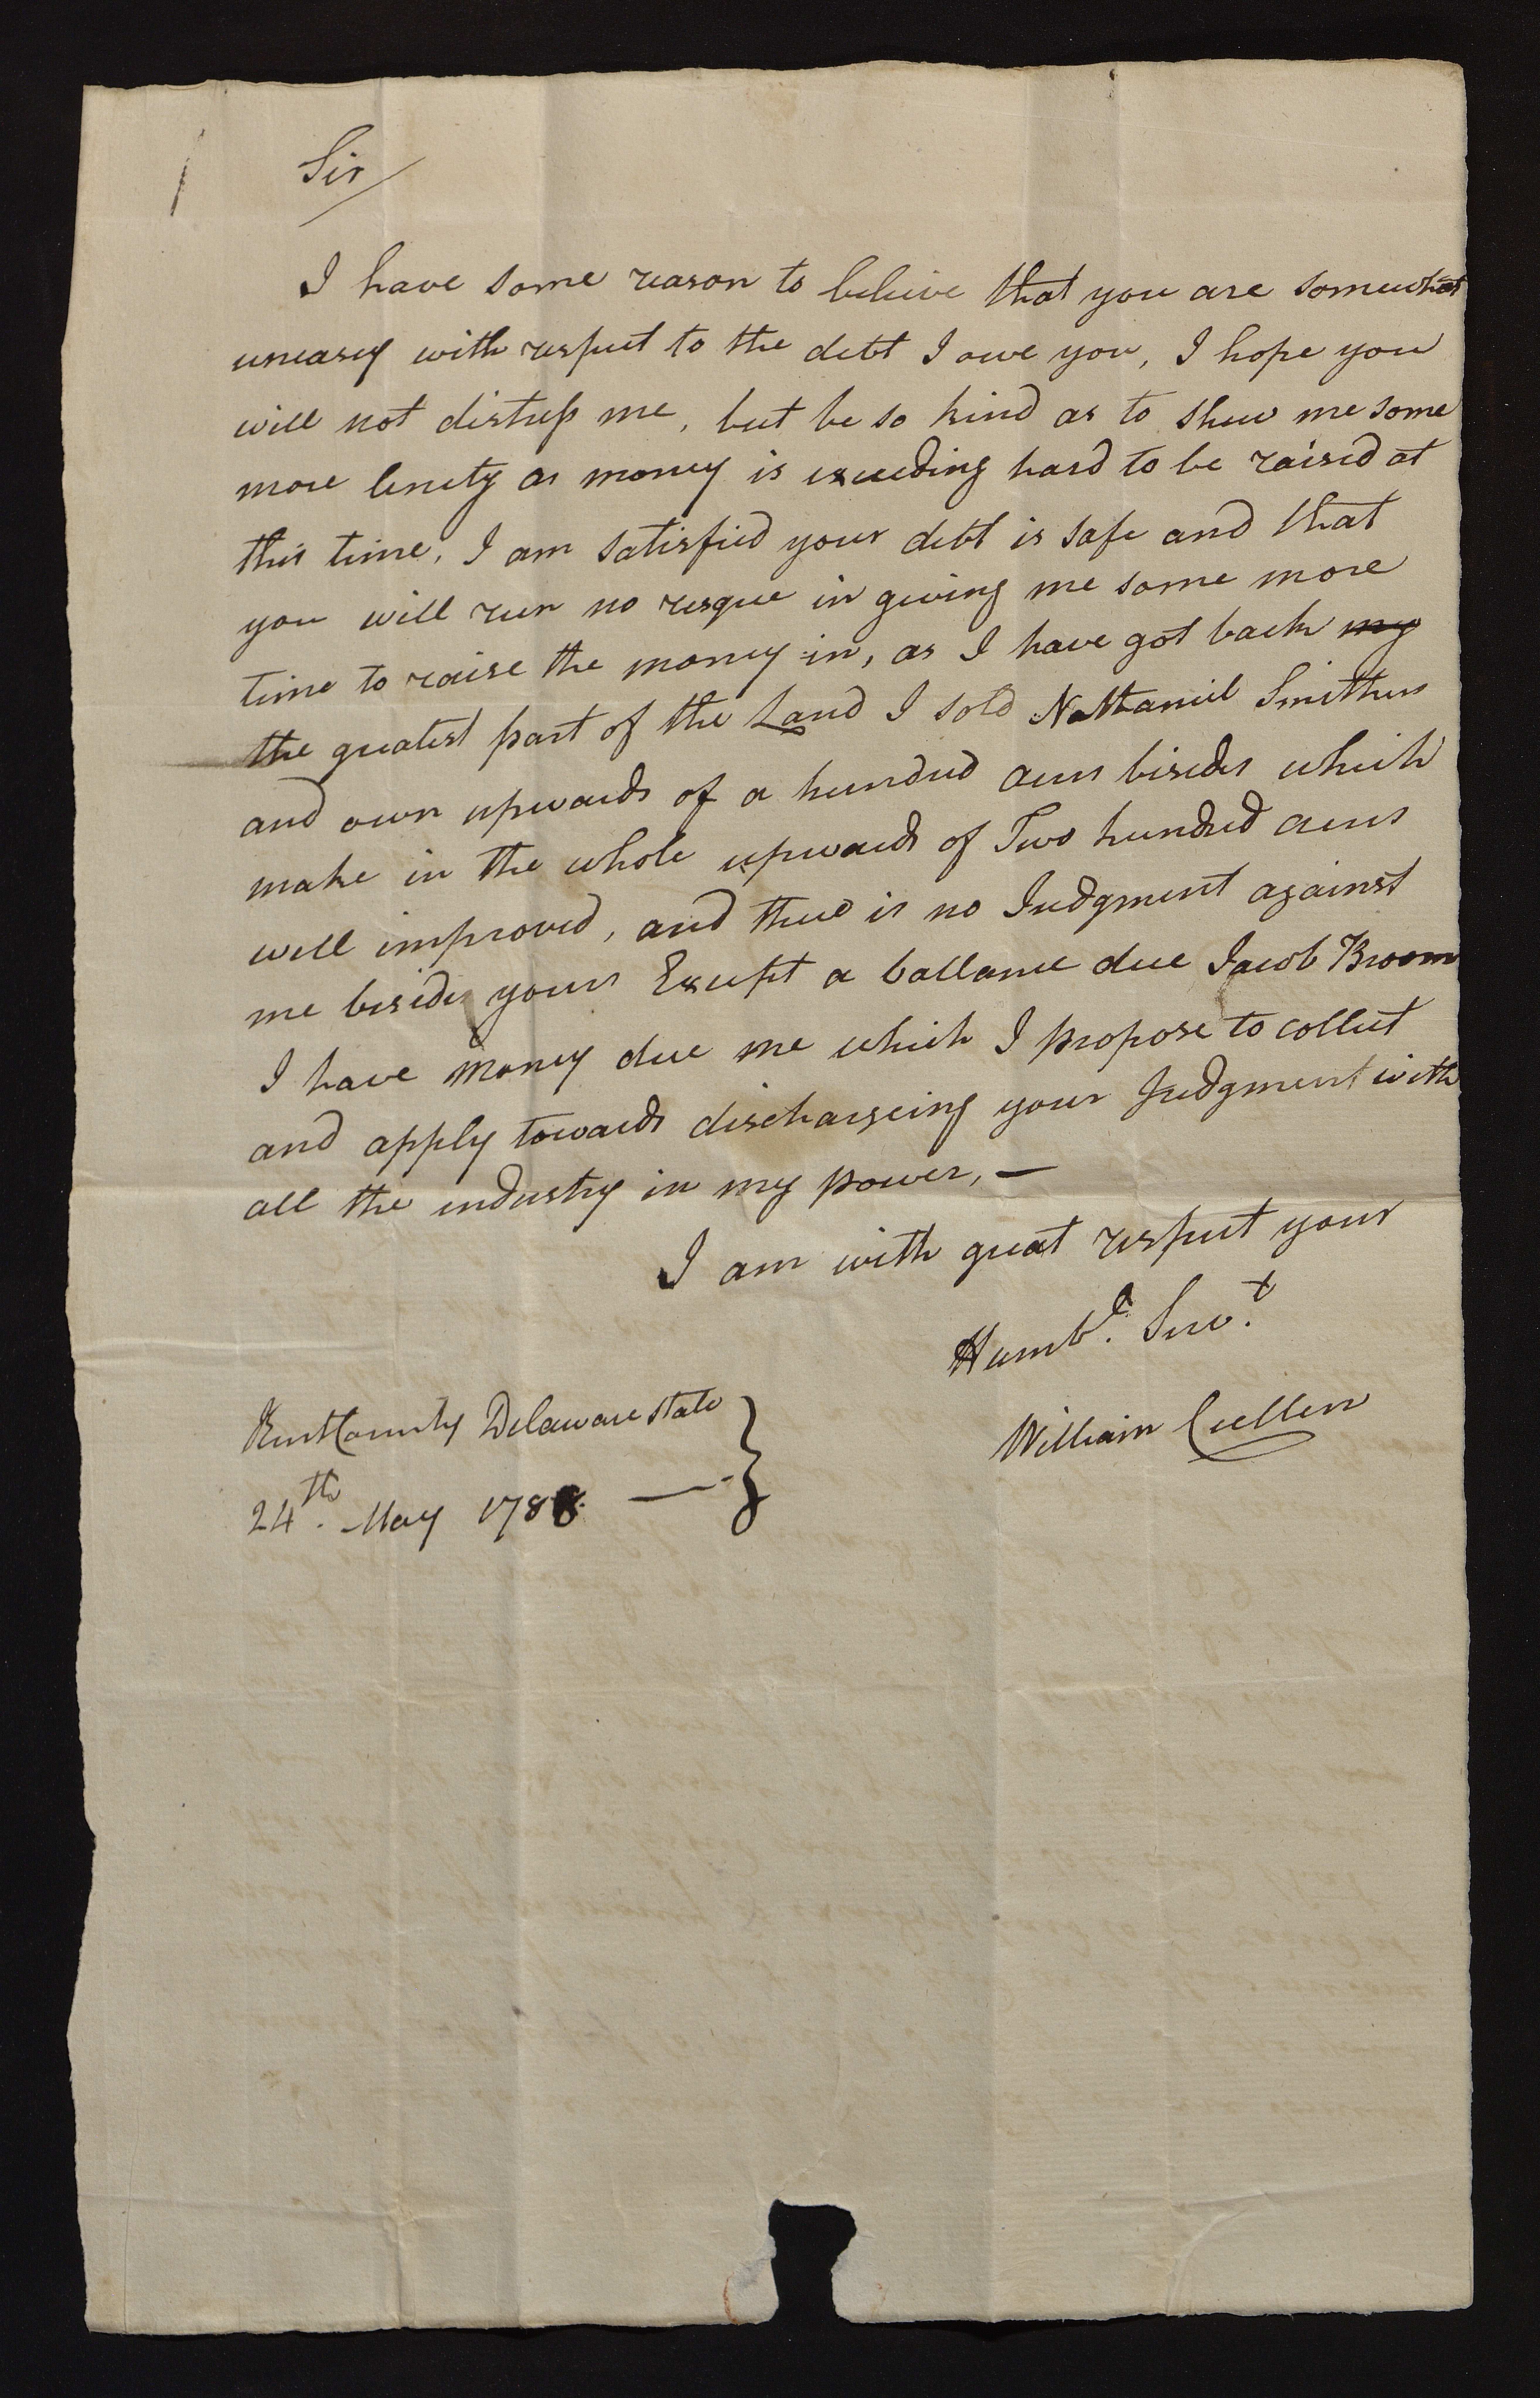 Sir
I have some reason to believe that you are somewhat
uneasy with respect to the debt I owe you, I hope you
will not distress me, but be so kind as to shew me some
more lenety as money is exceeding hard to be raised at
this time, I am satisfied your debt is safe and that
you will run no resque in giving me some more
time to raise the money in, as I have got back my
the greatest part of the Land I sold Nathaniel Smithers
and own upwards of a hundred acres besides which
make in the whole upwards of Two hundred acres
well improved, and there is no Judgment against
me besides yours Except a ballance due Jacob Broom
I have money due me which I propose to collect
and apply towards dischargeing your Judgment with
all the industry in my power, —
I am with great respect your
Humble. Servt.
William Cullen
Kent County Delaware state
24th. May 1788 —